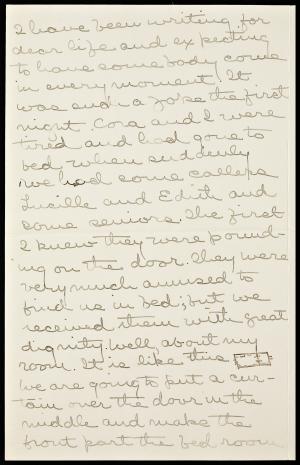 I have been writing for
dear life and expecting
to have some body come
in every moment. It
was such a joke the first
night. Cora and I were
tired and had gone to
bed when suddenly
we had some callers
Lucille and Edith and
some seniors. The first
I knew they were pound-
ing on the door. They were
very much amused to
find us in bed; but we
received them with great
dignity. Well, about my
room. It is like this
We are going to put a cur-
tain over the door in the
middle and make the
front part the bed room